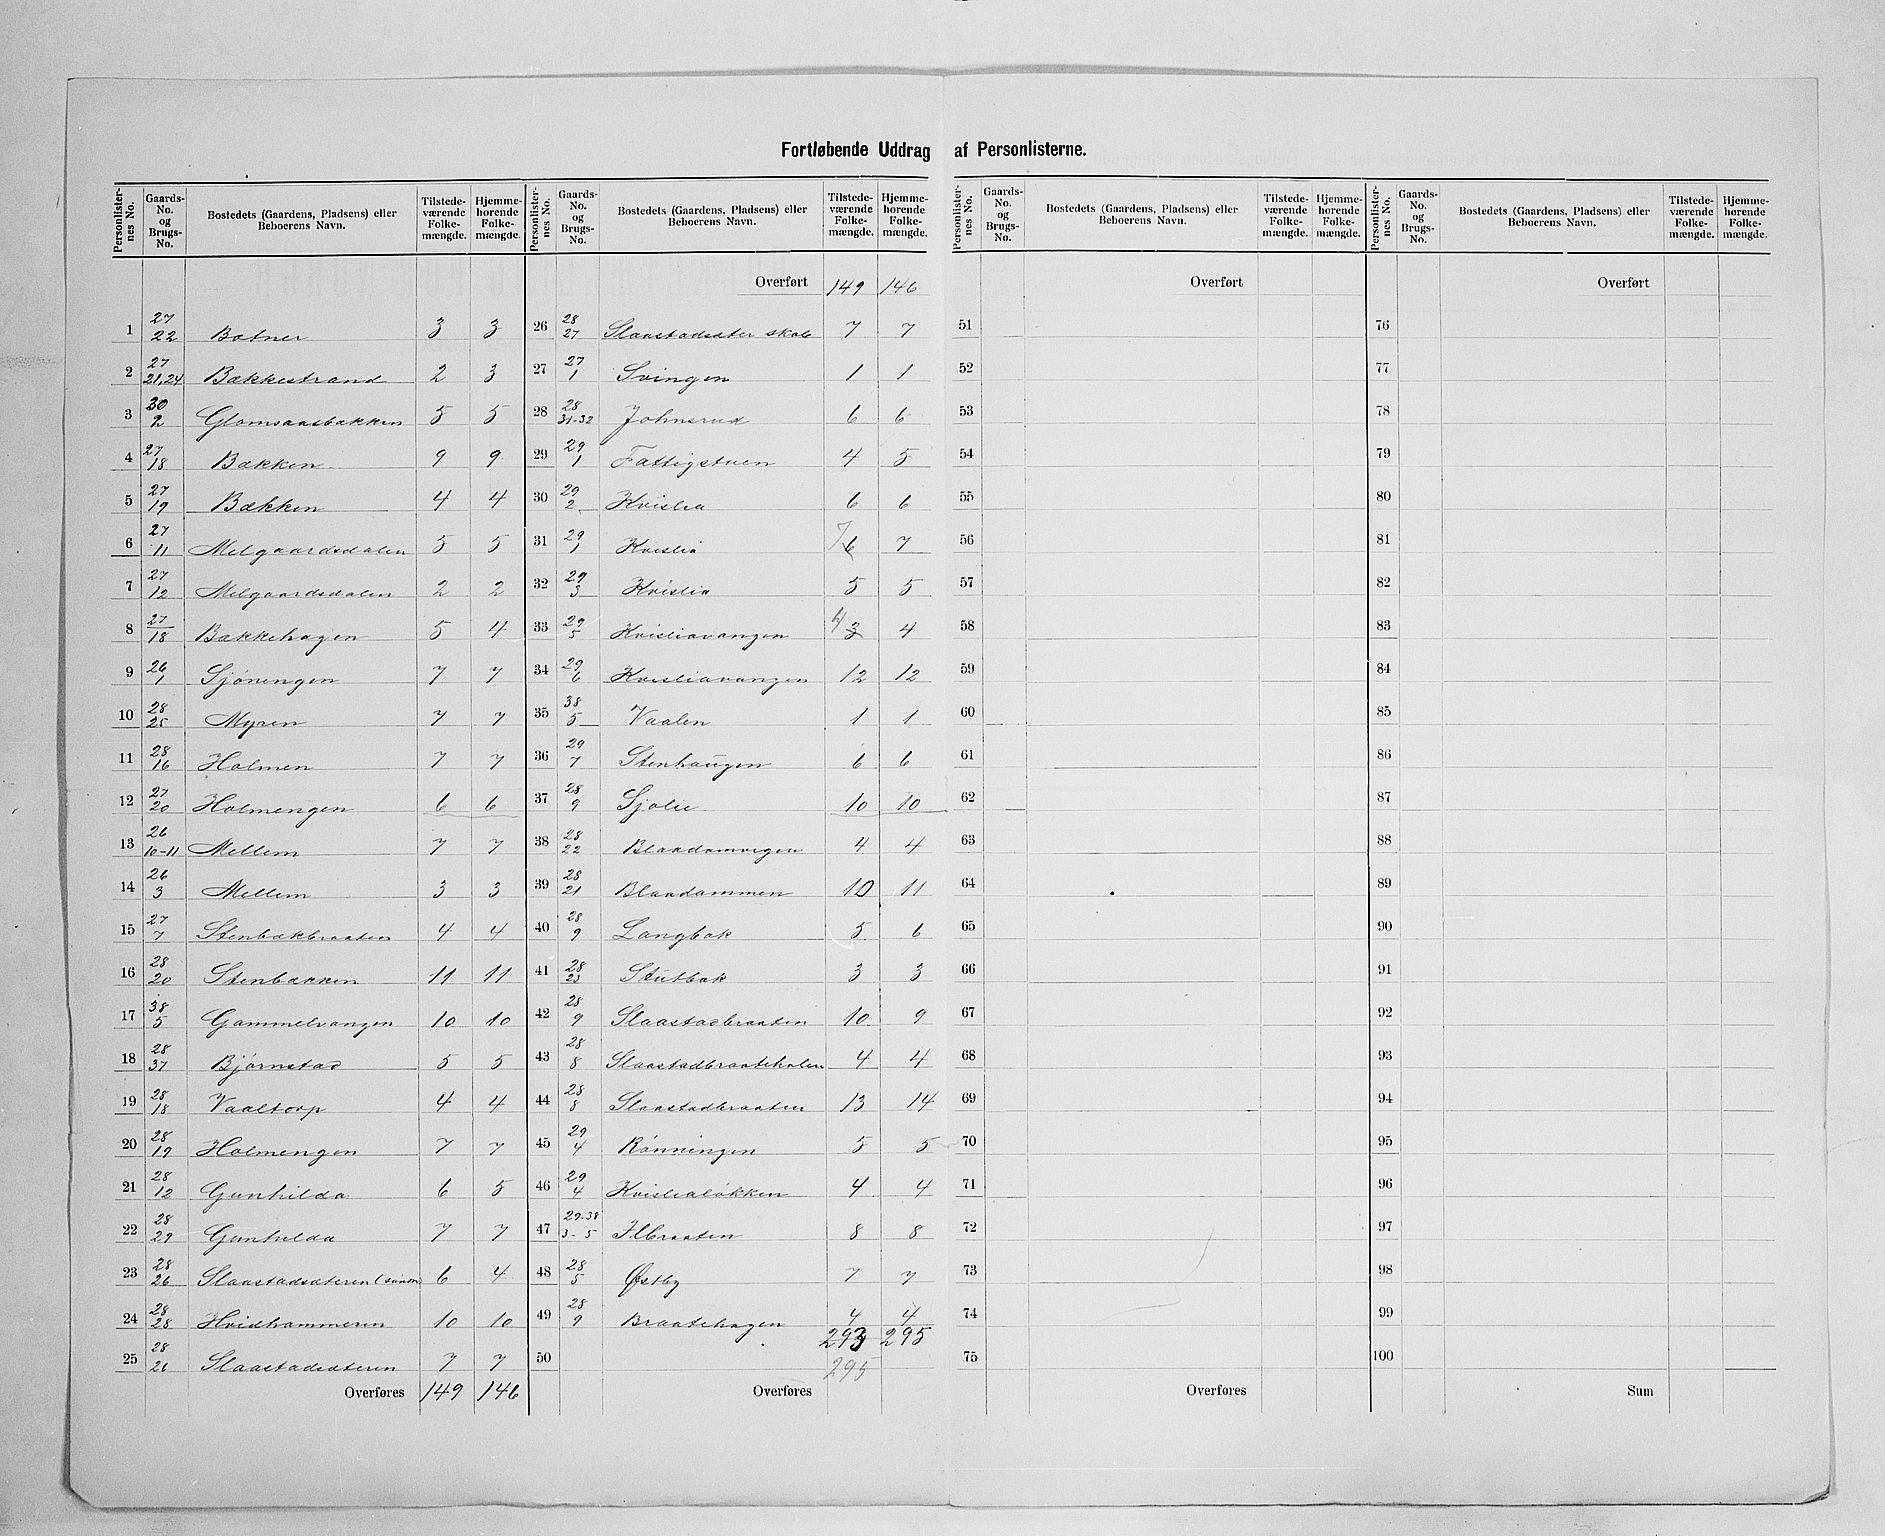 Fortløbende Uddrag af Personlisterne.
Personlisternes No. Gaards-No. og Brugs-No. Bostedets (Gaardens, Pladsens) eller Beboerens Navn. Tilstedeværende Folkemængde. Hjemmehørende Folkemængde.
1 27/22 Botner 3 3
2 27/21,24 Bækkestrand 2 3
3 30/2 Glomsaasbakken 5 5
4 27/18 Bækken 9 9
5 27/19 Bækken 4 4
6 27/11 Melgaardsdalen 5 5
7 27/12 Melgaardsdalen 2 2
8 27/18 Bækkehagen 5 4
9 26/1 Sjøningen 7 7
10 28/25 Myren 7 7
11 28/16 Holmen 7 7
12 27/20 Holmengen 6 6
13 26/10-11 Mellem 7 7
14 26/3 Mellem 3 3
15 27/7 Stenbækbraaten 4 4
16 28/20 Stenbækken 11 11
17 38/5 Gammelvangen 10 10
18 28/37 Bjørnstad 5 5
19 28/18 Vaaltorp 4 4
20 28/19 Holmengen 7 7
21 28/12 Gunhilda 6 5
22 28/29 Gunhilda 7 7
23 28/26 Slaastadsæteren (søndre) 6 4
24 28/28 Hvidhammeren 10 10
25 28/26 Slaastadsæteren 7 7
Overføres 149 146
Personlisternes No. Gaards-No. og Brugs-No. Bostedets (Gaardens, Pladsens) eller Beboerens Navn. Tilstedeværende Folkemængde. Hjemmehørende Folkemængde.
Overført 149 146
26 28/27 Slaastadsæter skole 7 7
27 27/1 Svingen 1 1
28 28/31-32 Johnsrud 6 6
29 29/1 Fattigstuen 4 5
30 29/2 Kvislia 6 6
31 29/1 Kvislia 7 6 7
32 29/3 Kvislia 5 5
33 29/5 Kvisliavangen 4 3 4
34 29/6 Kvisliavangen 12 12
35 38/5 Vaalen 1 1
36 29/7 Stenhaugen 6 6
37 28/9 Sjølie 10 10
38 28/22 Blaadamvegen 4 4
39 28/21 Blaadammen 10 11
40 28/9 Langbak 5 6
41 28/23 Stutbak 3 3
42 28/9 Slaastadbraaten 10 9
43 28/8 Slaastadbraatehalen 4 4
44 28/8 Slaastadbraaten 13 14
45 29/4 Rønningen 5 5
46 29/4 Kvislialøkken 4 4
47 29-38/3-5 Ilbraaten 8 8
48 28/5 Østby 7 7
49 28/9 Braatehagen 4 4
293 295
50 295
Overføres
Personlisternes No. Gaards-No. og Brugs-No. Bostedets (Gaardens, Pladsens) eller Beboerens Navn. Tilstedeværende Folkemængde. Hjemmehørende Folkemængde.
Overført
51
52
53
54
55
56
57
58
59
60
61
62
63
64
65
66
67
68
69
70
71
72
73
74
75
Overføres
Personlisternes No. Gaards-No. og Brugs-No. Bostedets (Gaardens, Pladsens) eller Beboerens Navn. Tilstedeværende Folkemængde. Hjemmehørende Folkemængde.
Overført
76
77
78
79
80
81
82
83
84
85
86
87
88
89
90
91
92
93
94
95
96
97
98
99
100
Sum